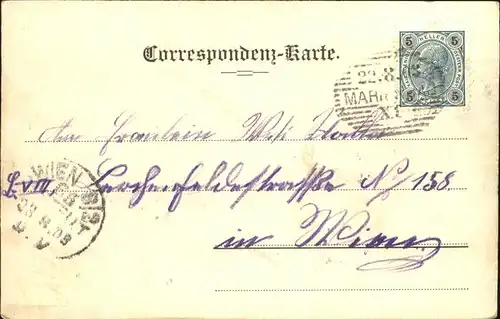 Correspondenz-Karte.
5 HELLER 5
5 5
22.8.
MARI
An Fräulein
WIEN 8/1
L. VIII, Lerchenfeldestraße No 158
in Wien